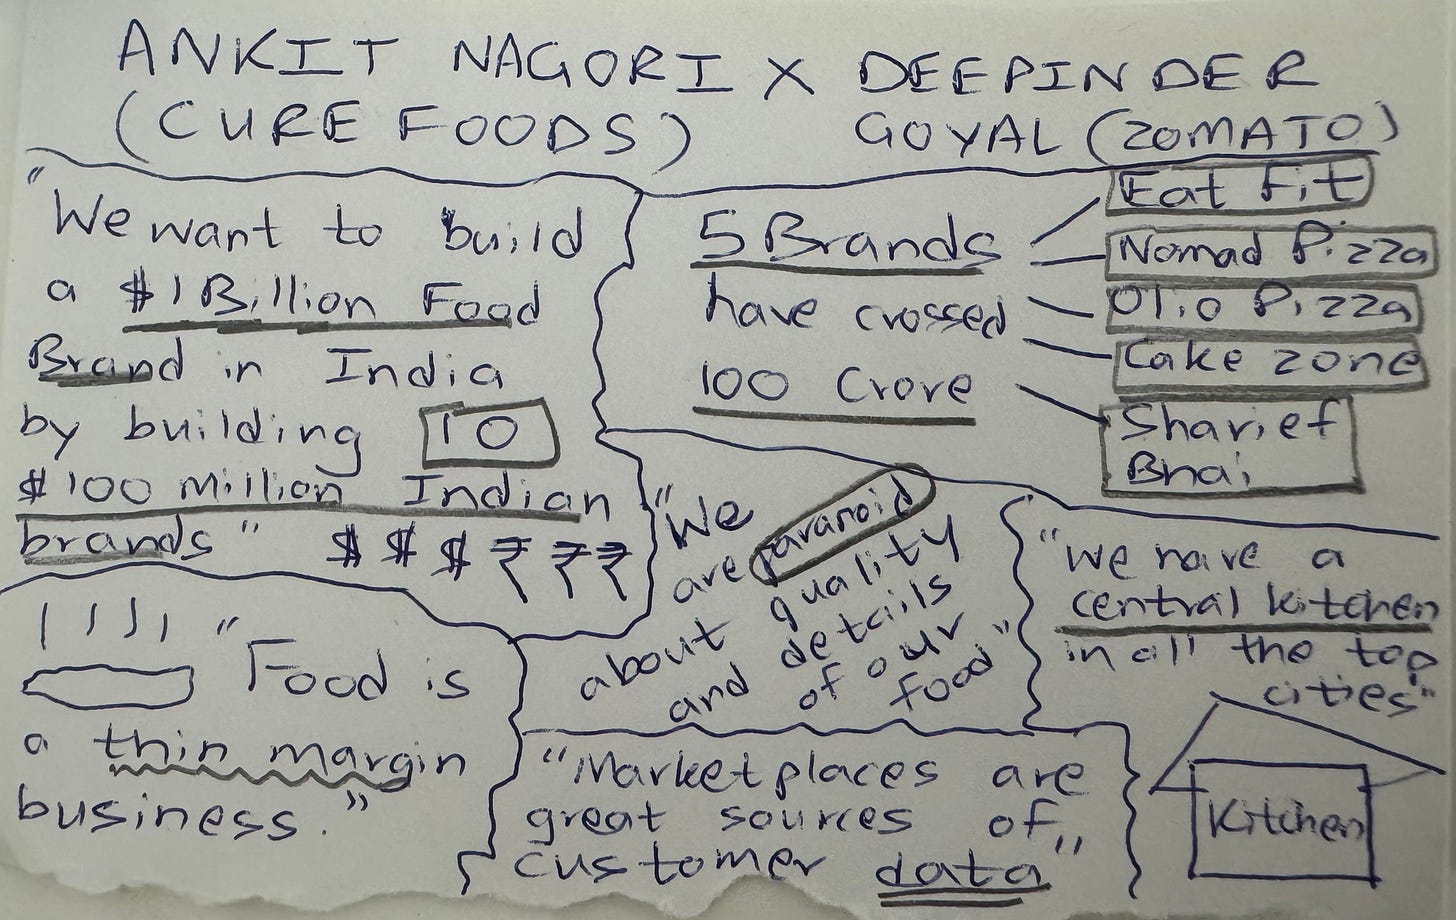 ANKIT NAGORI X DEEPINDER
(CURE FOODS) GOYAL (ZOMATO)
"We want to build
a $1 Billion Food
Brand in India
by building 10
$100 Million Indian
brands" $ $ $ ₹ ₹ ₹
5 Brands
have crossed
100 Crore
Eat Fit
Nomad Pizza
Olio Pizza
Cake zone
Sharief
Bhai
"We
are paranoid
about quality
and details
of our
food"
"We have a
central kitchen
in all the top
cities"
Kitchen
"Food is
a thin margin
business."
"Marketplaces are
great sources of
customer data"